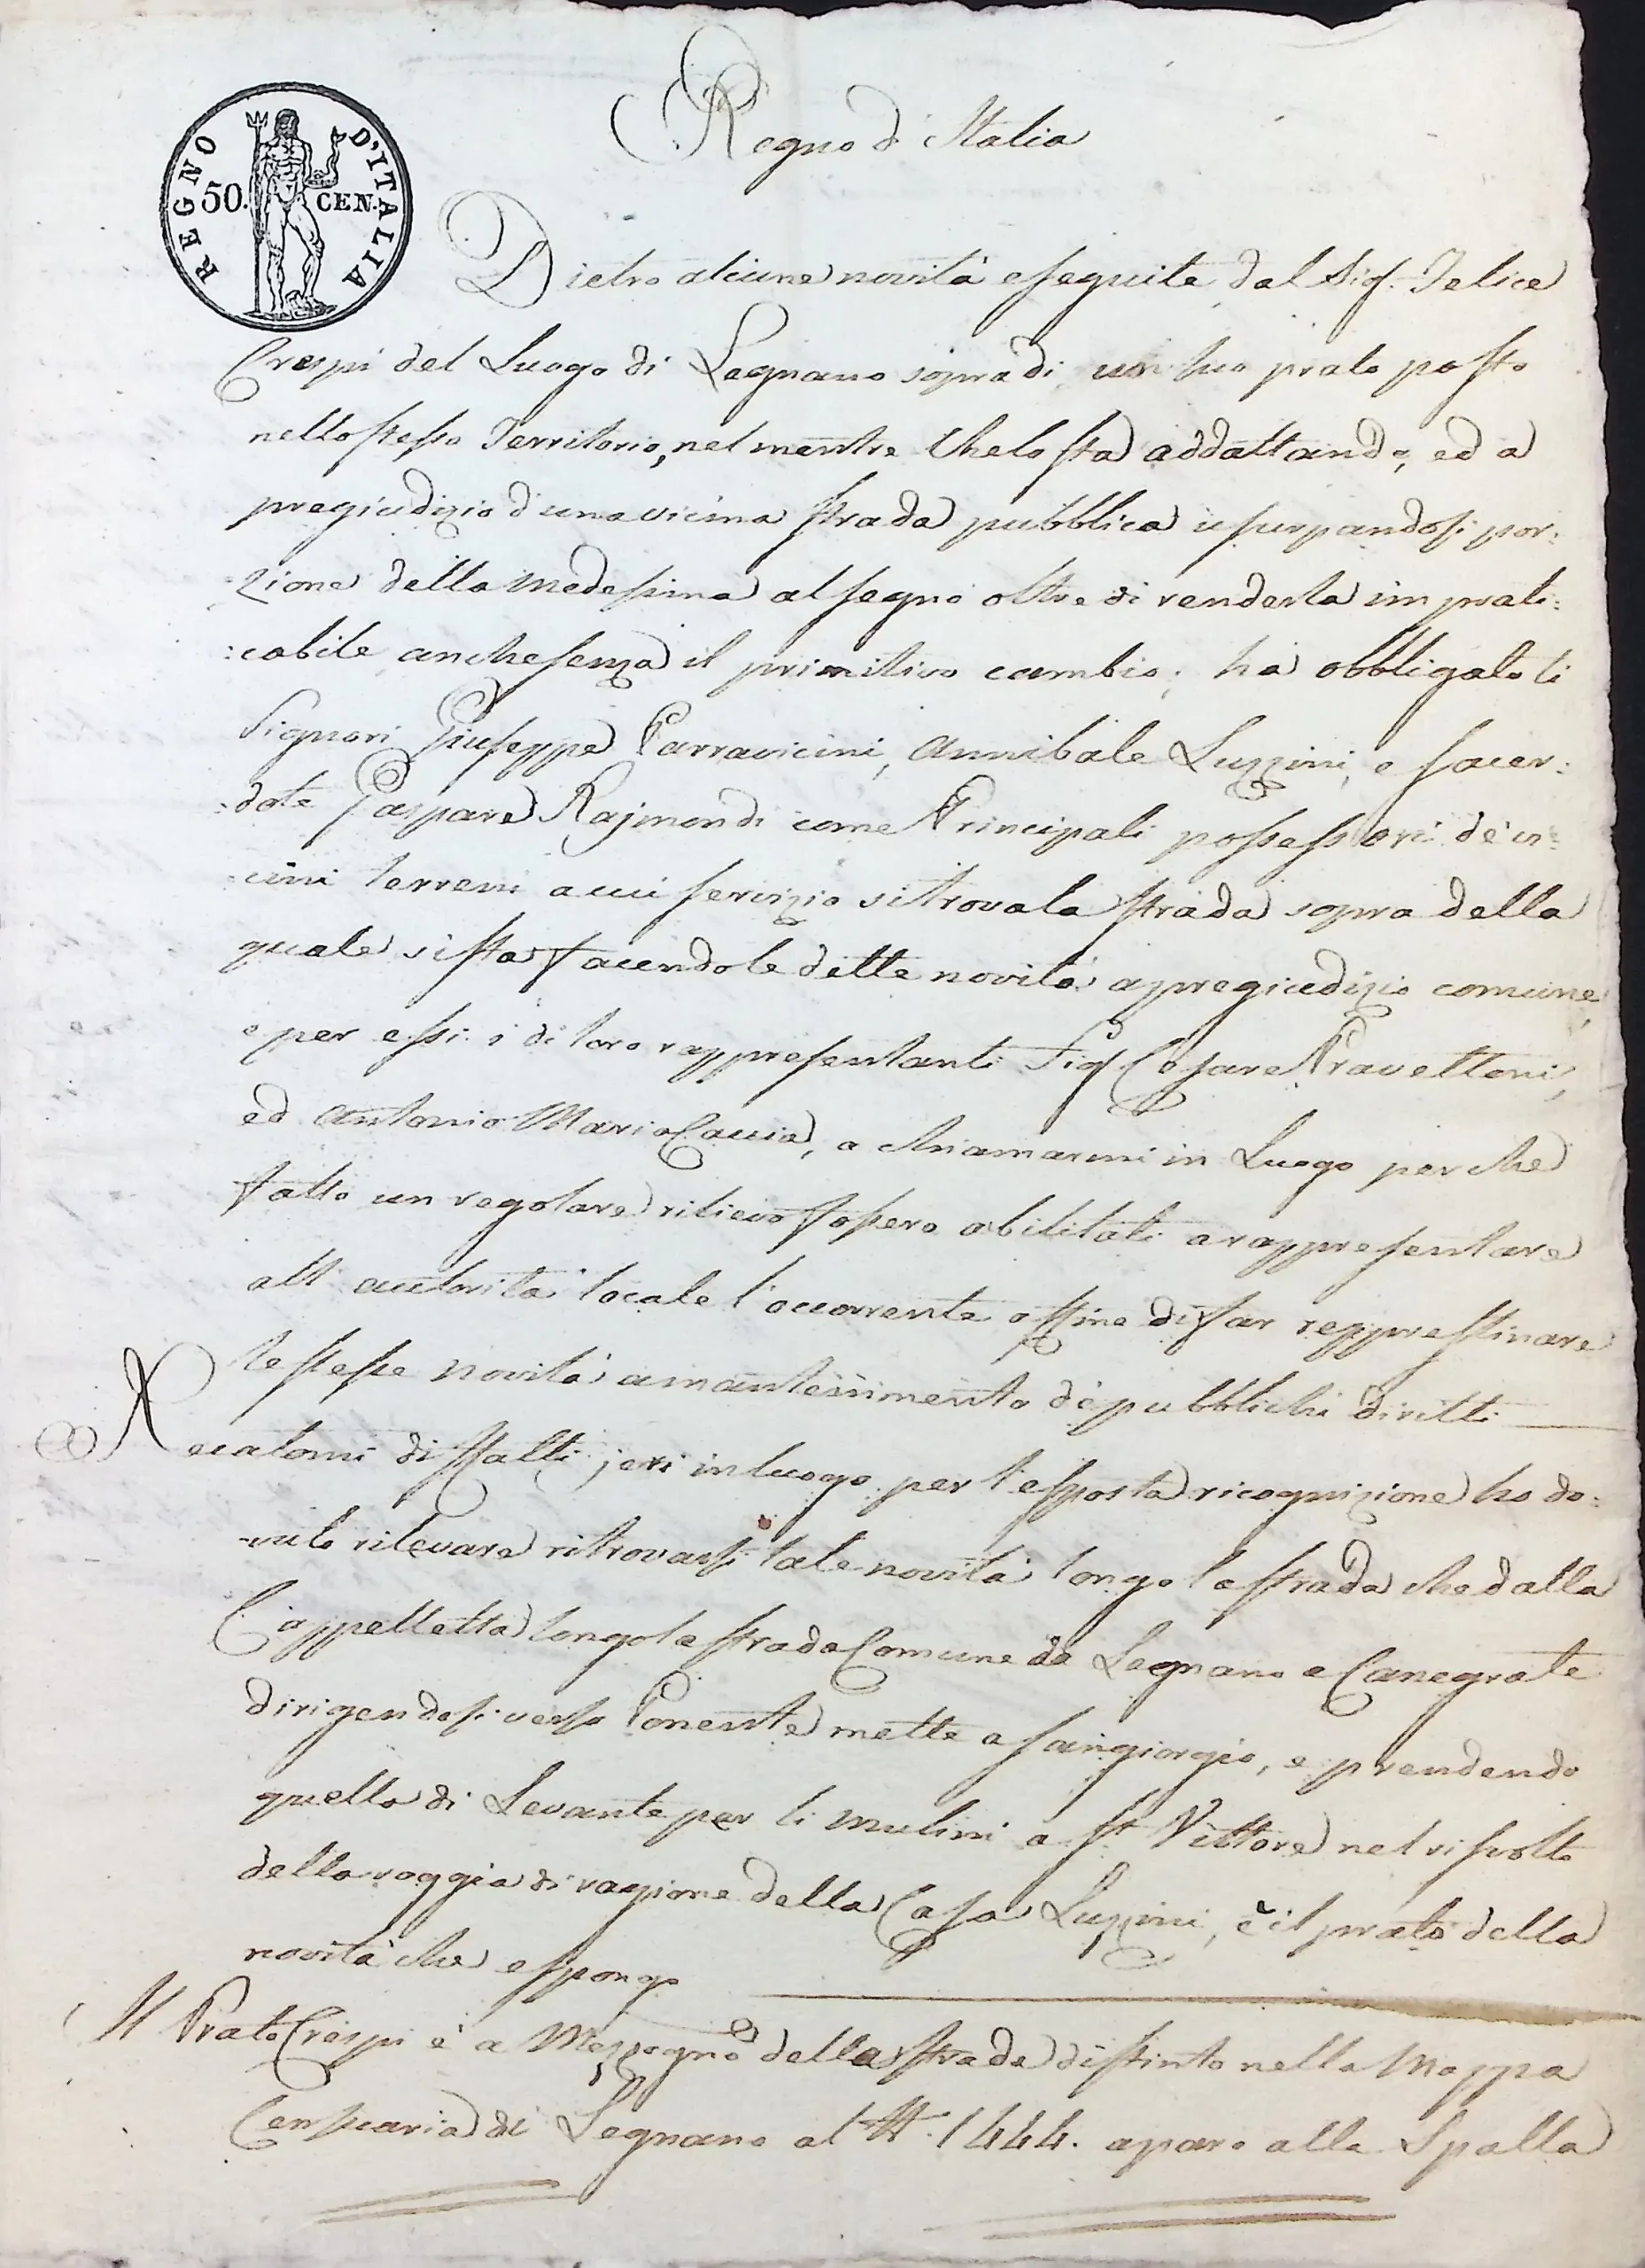 Regno d'Italia
REGNO D'ITALIA
50. CEN.
Dietro alcune novità eseguite dal Sig.r Felice
Crespi del Luogo di Legnano sopra di un suo prato posto
nello stesso Territorio, nel mentre che lo sta addattando, ed a
pregiudizio d'una vicina strada pubblica usurpandosi por:
:zione della medessima al segno oltre di renderla imprati:
:cabile anche senza il primitivo cambio; ha obbligato li
Signori Giuseppe Parravicini, Annibale Luzzini, e sacer:
:dote Gaspare Rajmondi come Principali possessori de' vi:
:cini terreni a cui servizio si trova la strada sopra della
quale si sta facendo le dette novità a pregiudizio comune,
e per essi i di loro rappresentanti Sig.r Cesare Pravettoni,
ed Antonio Maria Caccia, a chiamarmi in Luogo perchè
fatto un regolare rilievo fossero abilitati a rappresentare
all'autorità locale l'occorrente affine di far reppristinare
le stesse novità a mantenimento de' pubblichi diritti
Recatomi di fatti jeri in luogo per l'esposta ricognizione ho do:
:vuto rilevare ritrovarsi tale novità longo la strada che dalla
Cappelletta longo la strada Comune da Legnano a Canegrate
dirigendosi verso Ponente mette a sangiorgio, e prendendo
quella di Levante per li mulini a S.t Vittore nel risvolto
della roggia di ragione della Casa Luzzini, è il prato della
novità che espongo
Il Prato Crespi è a Mezzogno della strada distinto nella Mappa
Censuaria di Legnano al N. 1444. aparo alla Spalla